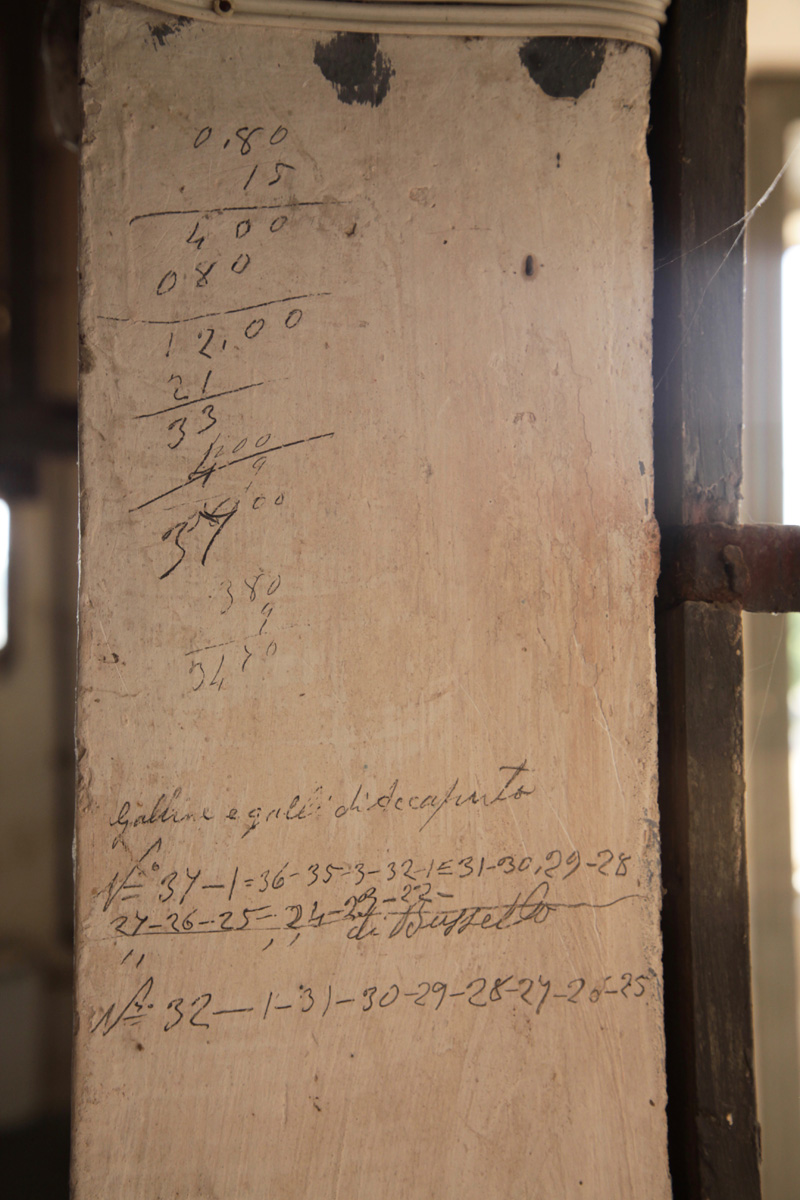 0,80
15
400
080
12,00
21
33
400
9
00
37
380
9
3470
Galline e galli di Decaputo
N.° 37-1=36-35=3-32-1=31-30,29-28
27-26-25= 24-23-22-
,, ,, di Bussello
N.° 32-1-31-30-29-28-27-26-25